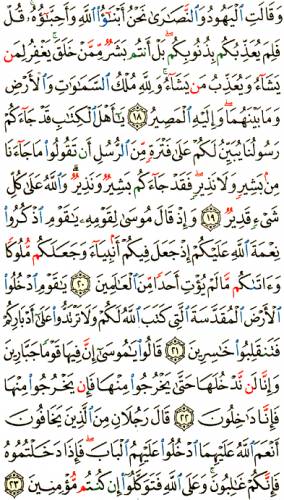 وَقَالَتِ ٱلْيَهُودُ وَٱلنَّصَٰرَىٰ نَحْنُ أَبْنَٰٓؤُا۟ ٱللَّهِ وَأَحِبَّٰٓؤُهُۥ ۚ قُلْ
فَلِمَ يُعَذِّبُكُم بِذُنُوبِكُم ۖ بَلْ أَنتُم بَشَرٌ مِّمَّنْ خَلَقَ ۚ يَغْفِرُ لِمَن
يَشَآءُ وَيُعَذِّبُ مَن يَشَآءُ ۚ وَلِلَّهِ مُلْكُ ٱلسَّمَٰوَٰتِ وَٱلْأَرْضِ
وَمَا بَيْنَهُمَا ۖ وَإِلَيْهِ ٱلْمَصِيرُ ١٨ يَٰٓأَهْلَ ٱلْكِتَٰبِ قَدْ جَآءَكُمْ
رَسُولُنَا يُبَيِّنُ لَكُمْ عَلَىٰ فَتْرَةٍ مِّنَ ٱلرُّسُلِ أَن تَقُولُوا۟ مَا جَآءَنَا
مِنۢ بَشِيرٍ وَلَا نَذِيرٍ ۖ فَقَدْ جَآءَكُم بَشِيرٌ وَنَذِيرٌ ۗ وَٱللَّهُ عَلَىٰ كُلِّ
شَىْءٍ قَدِيرٌ ١٩ وَإِذْ قَالَ مُوسَىٰ لِقَوْمِهِۦ يَٰقَوْمِ ٱذْكُرُوا۟
نِعْمَةَ ٱللَّهِ عَلَيْكُمْ إِذْ جَعَلَ فِيكُمْ أَنۢبِيَآءَ وَجَعَلَكُم مُّلُوكًا
وَءَاتَىٰكُم مَّا لَمْ يُؤْتِ أَحَدًا مِّنَ ٱلْعَٰلَمِينَ ٢٠ يَٰقَوْمِ ٱدْخُلُوا۟
ٱلْأَرْضَ ٱلْمُقَدَّسَةَ ٱلَّتِى كَتَبَ ٱللَّهُ لَكُمْ وَلَا تَرْتَدُّوا۟ عَلَىٰٓ أَدْبَارِكُمْ
فَتَنقَلِبُوا۟ خَٰسِرِينَ ٢١ قَالُوا۟ يَٰمُوسَىٰٓ إِنَّ فِيهَا قَوْمًا جَبَّارِينَ
وَإِنَّا لَن نَّدْخُلَهَا حَتَّىٰ يَخْرُجُوا۟ مِنْهَا فَإِن يَخْرُجُوا۟ مِنْهَا
فَإِنَّا دَٰخِلُونَ ٢٢ قَالَ رَجُلَانِ مِنَ ٱلَّذِينَ يَخَافُونَ
أَنْعَمَ ٱللَّهُ عَلَيْهِمَا ٱدْخُلُوا۟ عَلَيْهِمُ ٱلْبَابَ ۖ فَإِذَا دَخَلْتُمُوهُ
فَإِنَّكُمْ غَٰلِبُونَ ۚ وَعَلَى ٱللَّهِ فَتَوَكَّلُوٓا۟ إِن كُنتُم مُّؤْمِنِينَ ٢٣